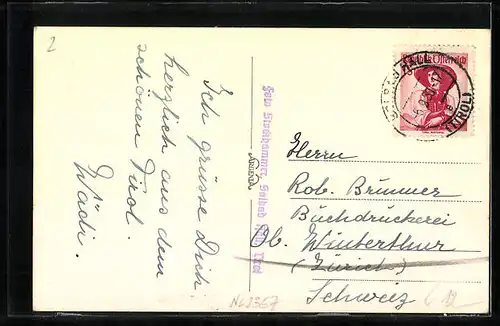 2
Ich grüsse Dich
herzlich aus dem
schönen Tirol.
Wädi.
Foto Stockhammer, Solbad Hall, Tirol
Herrn
Rob. Brunner
Buchdruckerei
Ob. Winterthur
(Zürich)
Schweiz
SOLBAD HALL
(TIROL)
Österreich
N69367